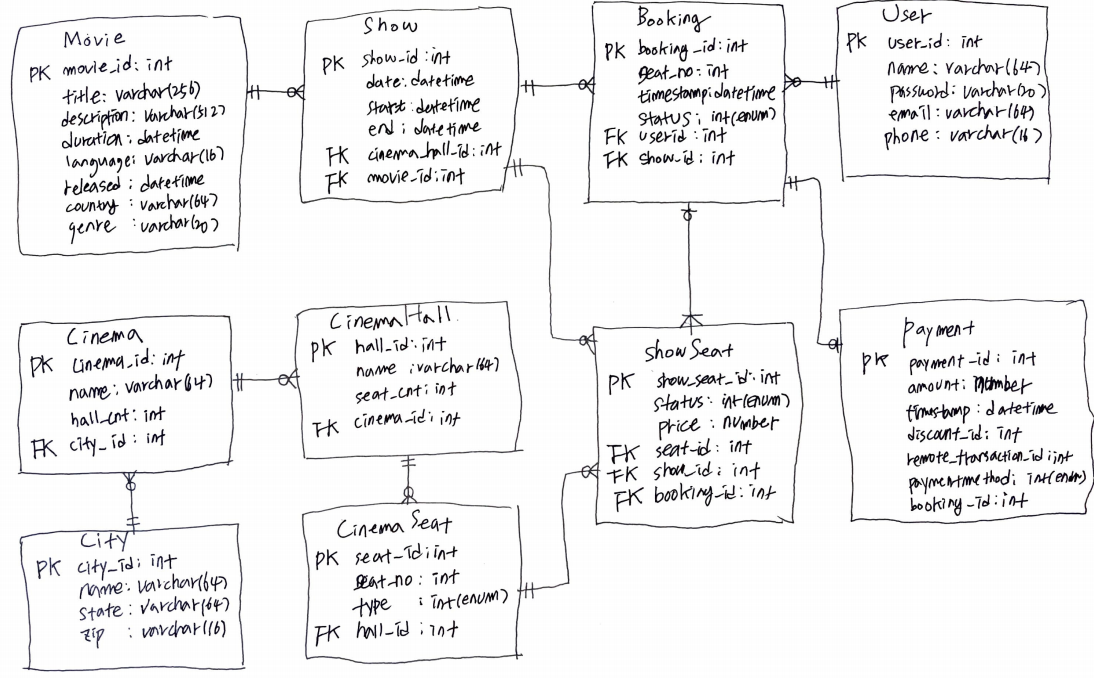 Movie
PK movie_id: int
title: varchar(256)
description: varchar(512)
duration: datetime
language: varchar(16)
released: datetime
country: varchar(64)
genre: varchar(20)
Show
PK show_id: int
date: datetime
start: datetime
end: datetime
FK cinema_hall_id: int
FK movie_id: int
Booking
PK booking_id: int
seat_no: int
timestamp: datetime
status: int(enum)
FK userid: int
FK show_id: int
User
PK user_id: int
name: varchar(64)
password: varchar(20)
email: varchar(64)
phone: varchar(16)
Cinema
PK cinema_id: int
name: varchar(64)
hall_cnt: int
FK city_id: int
CinemaHall
PK hall_id: int
name: varchar(64)
seat_cnt: int
FK cinema_id: int
showSeat
PK show_seat_id: int
status: int(enum)
price: number
FK seat-id: int
FK show_id: int
FK booking_id: int
Payment
PK payment_id: int
amount: number
timestamp: datetime
discount_id: int
remote_transaction_id: int
paymentmethod: int(enum)
booking_id: int
City
PK city_id: int
name: varchar(64)
state: varchar(64)
zip: varchar(16)
Cinema Seat
PK seat_id: int
seat_no: int
type: int(enum)
FK hall_id: int